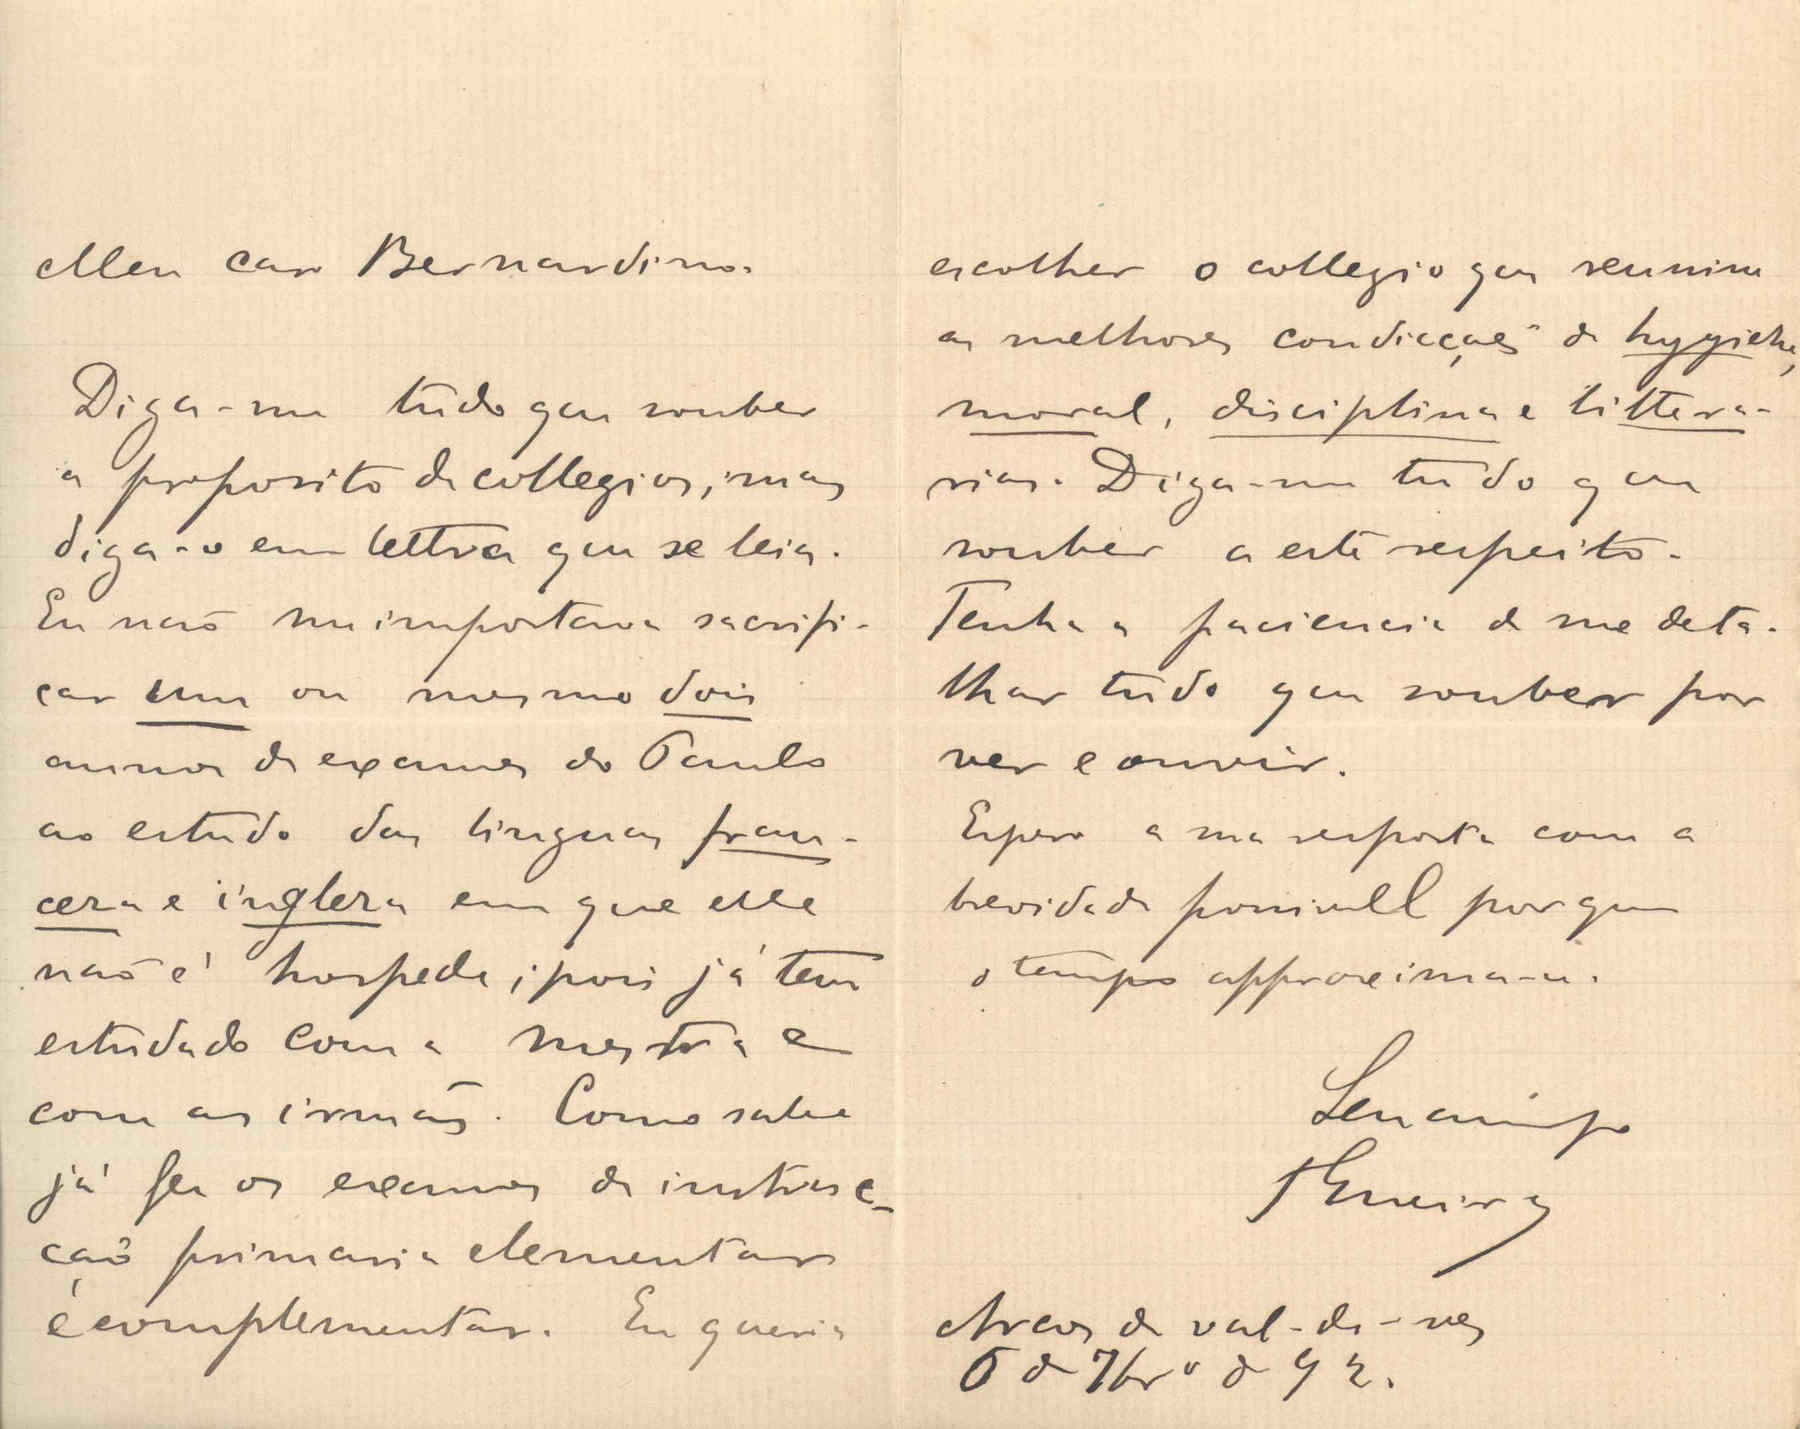 Meu caro Bernardino.
Diga-me tudo que souber
a proposito de collegios, mas
diga-o em lettra que se leia.
Eu naõ me importava sacrifi-
car um ou mesmo dois
annos de exames do Paulo
ao estudo das linguas fran-
ceza e ingleza em que elle
naõ é hospede, pois já tem
estudado com a mestra e
com as irmãs. Como sabe
já fez os exames de instruc-
çaõ primaria elementar
e complementar. Eu queria
escolher o collegio que reunisse
as melhores condicções de hygiene,
moral, disciplina e littera-
rias. Diga-me tudo que
souber a este respeito.
Tenha a paciencia de me deta-
lhar tudo que souber por
ver e ouvir.
Espero a sua resposta com a
brevidade possivell porque
o tempo approxima-se.
Seu amigo
Arcos de val-de-vez
6 de 7bro de 92.